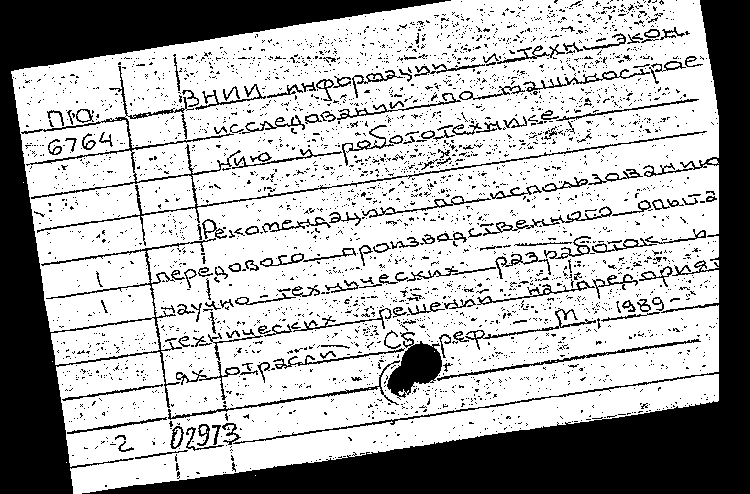 П10 ВНИИ информации и техн.-экон.
6764 исследований по машинострое
нию и робототехнике.
Рекомендации по использованию
1 передового производственного опыта
1 научно-технических разработок и
технических решений на предприят
ях отрасли Сб. реф. - М., 1989-
2 02973